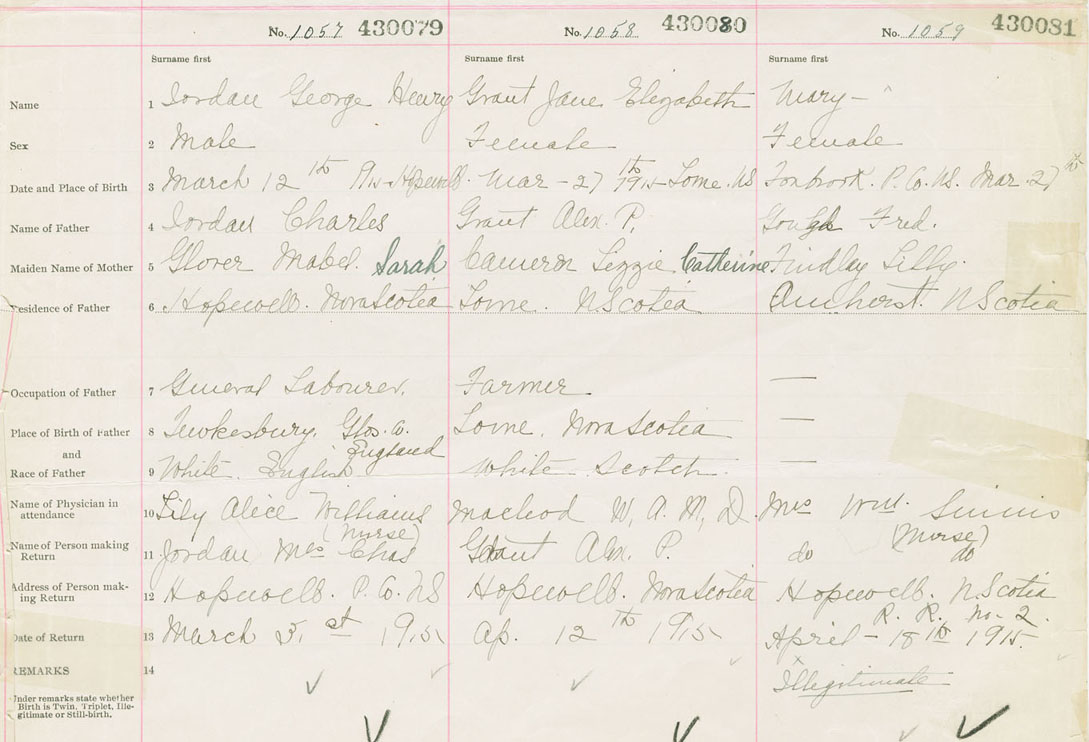 No. 1057 430079 No. 1058 430080 No. 1059 430081
Surname first Surname first Surname first
Name 1 Jordan George Henry Grant Jane Elizabeth Mary –
Sex 2 Male Female Female
Date and Place of Birth 3 March 12th 1915 Hopewell. Mar – 27th 1915 Lorne. NS Foxbrook. P. Co. NS. Mar 27th
Name of Father 4 Jordan Charles Grant Alex. P. Gough Fred.
Maiden Name of Mother 5 Glover Mabel. Sarah Cameron Lizzie Catherine Findlay Lilly.
Residence of Father 6 Hopewell. Nova Scotia Lorne. N Scotia Amherst. N Scotia
Occupation of Father 7 General Labourer. Farmer —
Place of Birth of Father 8 Tewkesbury. Glos. Co. England Lorne. Nova Scotia —
and
Race of Father 9 White. English White Scotch. —
Name of Physician in
attendance 10 Lily Alice Williams (Nurse) Macleod W. A. M, D. Mrs Wm. (Nurse)
Name of Person making
Return 11 Jordan Mrs Chas Grant Alex. P. do do
Address of Person mak-
ing Return 12 Hopewell. P. Co. NS Hopewell. Nova Scotia Hopewell. N. Scotia
R. R. No. 2.
Date of Return 13 March 31st 1915 Ap. 12th 1915 April – 18th 1915.
REMARKS 14 Illegitimate
Under remarks state whether
Birth is Twin, Triplet, Ille-
gitimate or Still-birth.